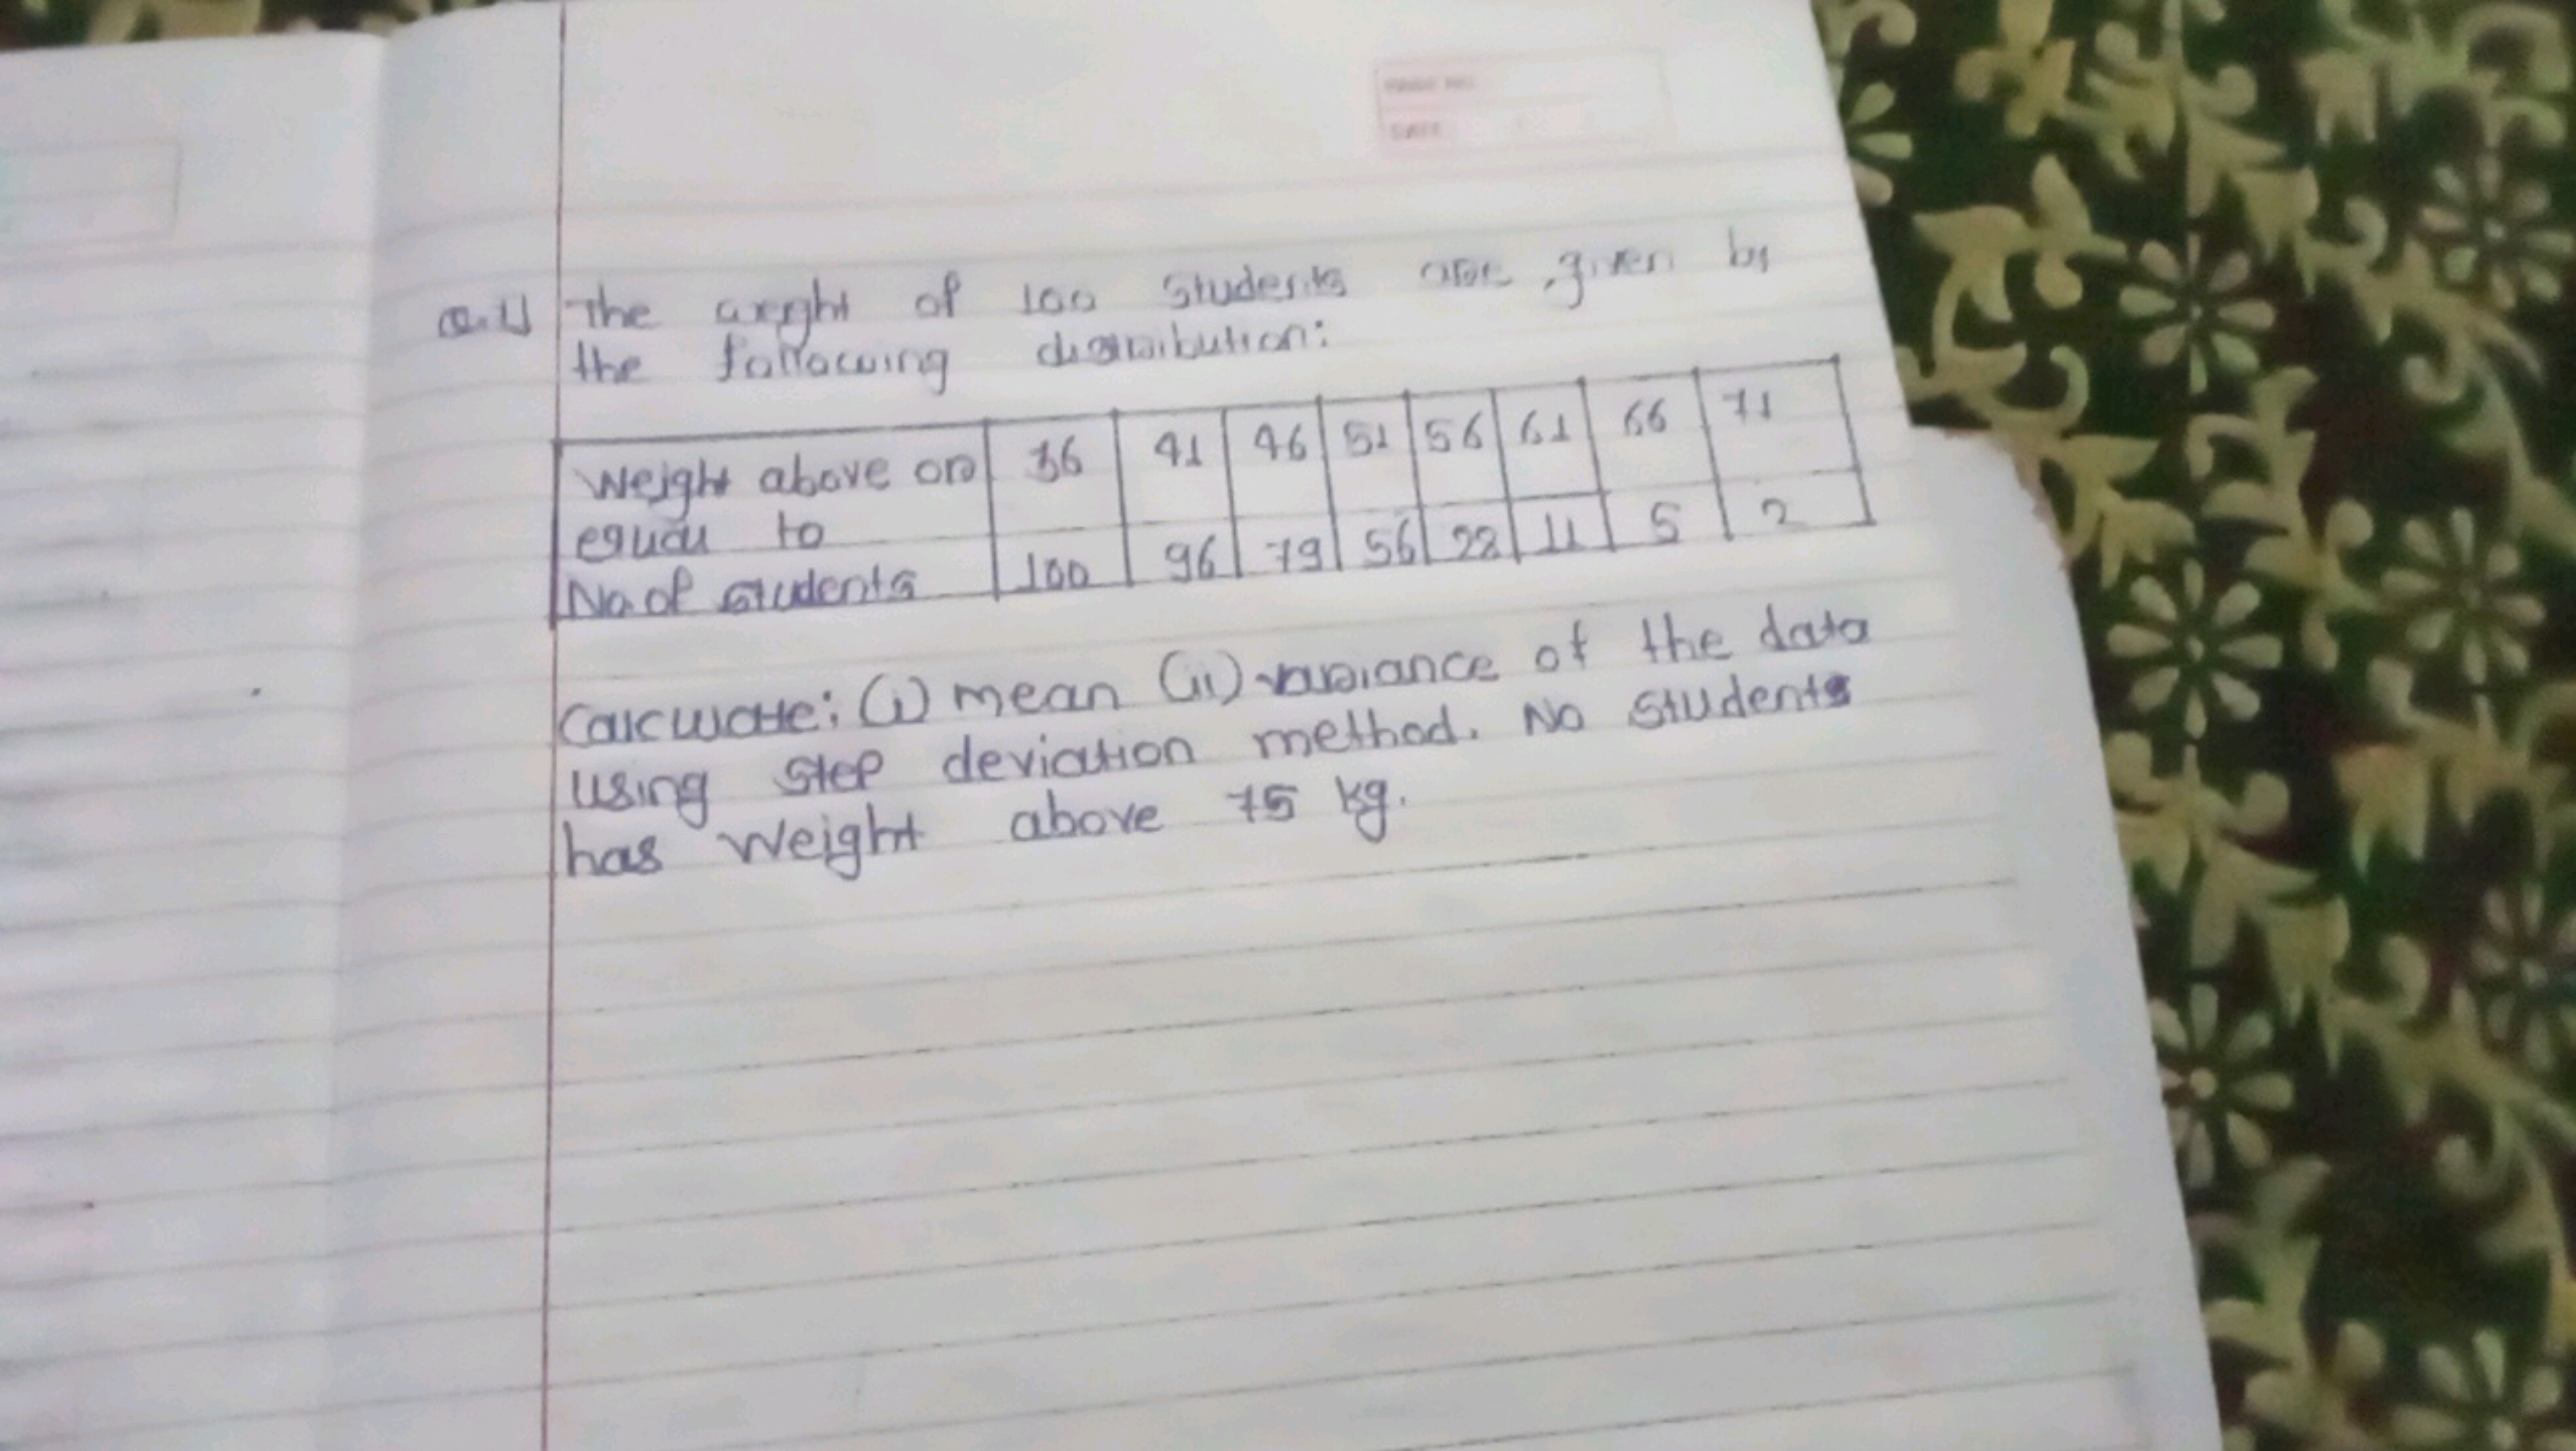 PAGE NO.
DATE
Q.1] The weight of 100 students are given by
the following distribution:
Weight above or equal to 36 41 46 51 56 61 66 71
No of students 100 96 79 56 22 11 5 2
Calculate: (i) mean (ii) variance of the data
using step deviation method. No students
has weight above 75 kg.